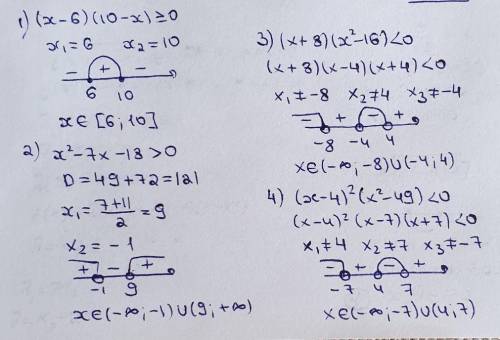 1) (x-6)(10-x)≥0
x₁=6 x₂=10
- + -
6 10
x∈[6;10]
2) x²-7x-18>0
D=49+72=121
x₁=7+11/2=9
x₂=-1
+ - +
-1 9
x∈(-∞;-1)∪(9;+∞)
3) (x+8)(x²-16)<0
(x+8)(x-4)(x+4)<0
x₁≠-8 x₂≠4 x₃≠-4
- + - +
-8 -4 4
x∈(-∞;-8)∪(-4;4)
4) (x-4)²(x²-49)<0
(x-4)²(x-7)(x+7)<0
x₁≠4 x₂≠7 x₃≠-7
- + - +
-7 4 7
x∈(-∞;-7)∪(4;7)